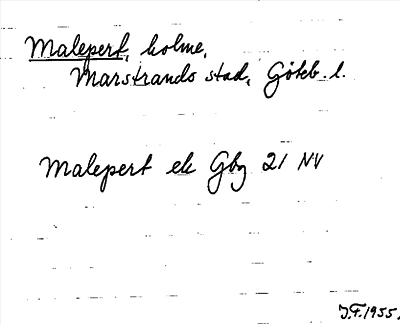 Malepert, holme,
Marstrands stad, Göteb. l.
Malepert ek Gbg 21 NV
J.F. 1955.